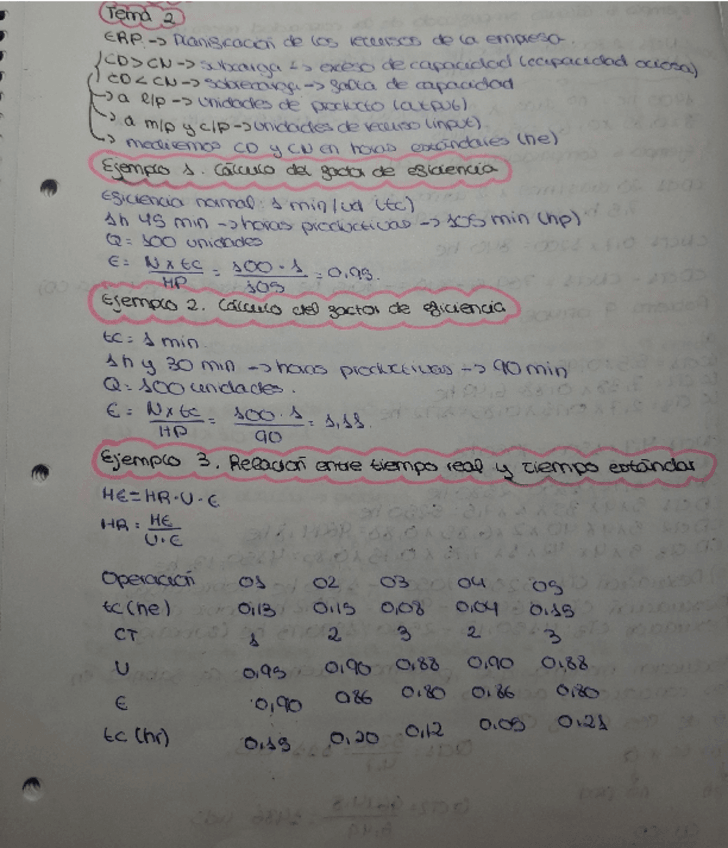 Tema 2
ERP -> Planificación de los recursos de la empresa.
CD>CN -> subcarga -> exceso de capacidad (capacidad ociosa)
CD<CN -> sobrecarga -> falta de capacidad
-> a l/p -> unidades de producto (output)
-> a m/p y c/p -> unidades de recurso (input)
-> mediremos CD y CN en horas estándares (he)
Ejemplo 1. Cálculo del factor de eficiencia
Eficiencia normal: 1 min/ud (tc)
1h 45 min -> horas productivas -> 105 min (hp)
Q = 100 unidades
E = N x tc / HP = 100 · 1 / 105 = 0,95.
Ejemplo 2. Cálculo del factor de eficiencia
tc = 1 min.
1h y 30 min -> horas productivas -> 90 min
Q = 100 unidades.
E = N x tc / HP = 100 · 1 / 90 = 1,11.
Ejemplo 3. Relación entre tiempo real y tiempo estándar
HE = HR · U · E
HR = HE / U · E
Operación 01 02 03 04 05
tc (he) 0,13 0,15 0,08 0,04 0,15
CT 1 2 3 2 3
U 0,95 0,90 0,88 0,90 0,88
E 0,90 0,86 0,80 0,86 0,80
tc (hr) 0,15 0,20 0,12 0,05 0,21